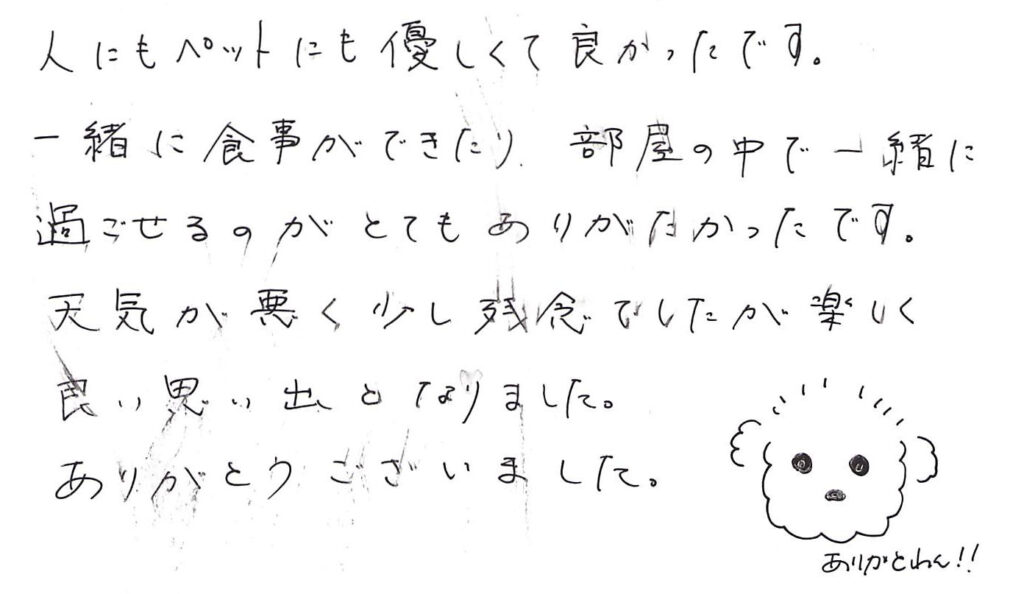 人にもペットにも優しくて良かったです。
一緒に食事ができたり、部屋の中で一緒に
過ごせるのがとてもありがたかったです。
天気が悪く少し残念でしたが楽しく
良い思い出となりました。
ありがとうございました。
ありがとわん!!